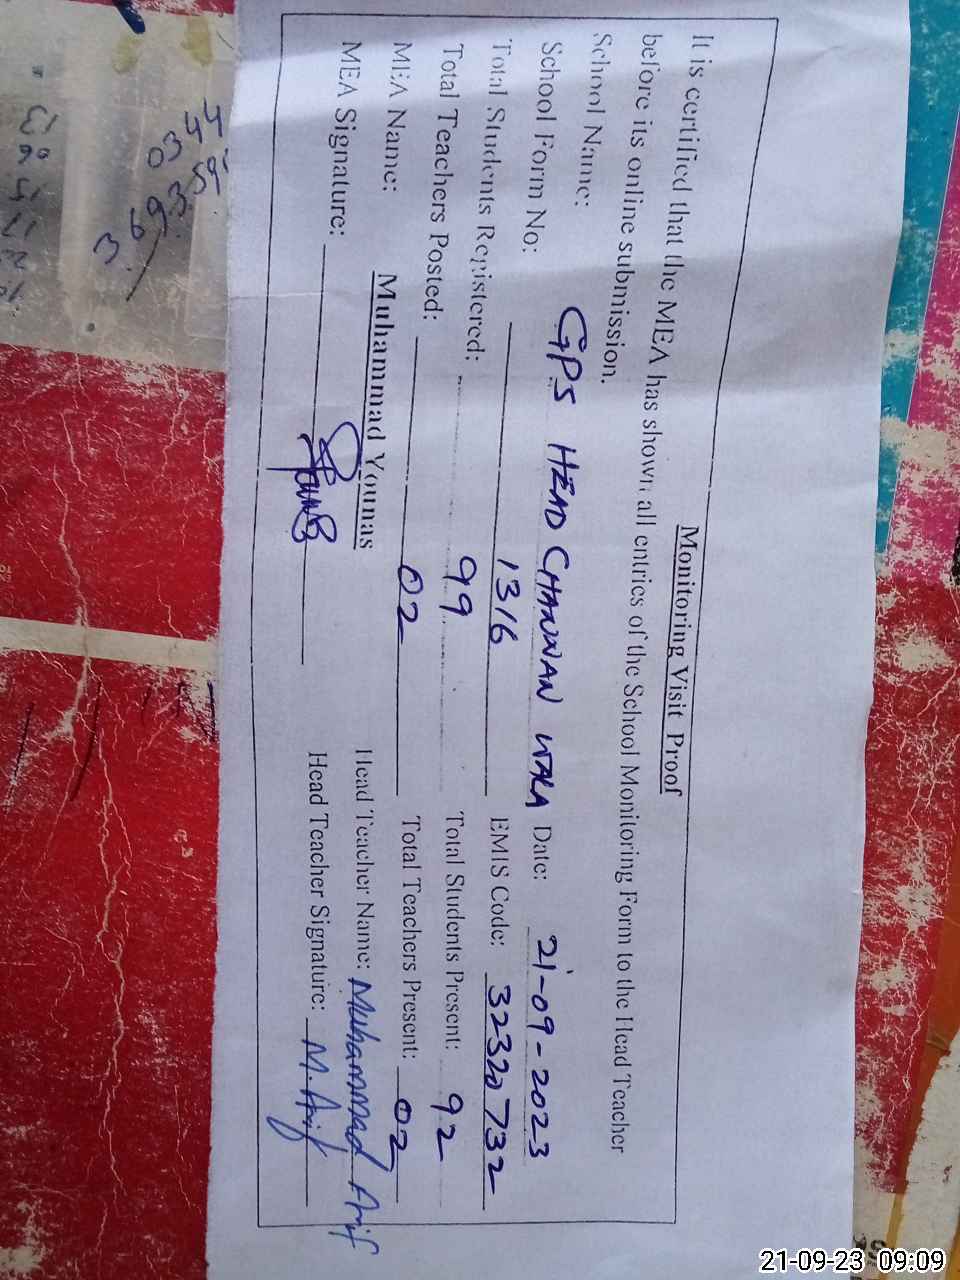 Monitoring Visit Proof
It is certified that the MEA has shown all entries of the School Monitoring Form to the Head Teacher
before its online submission.
School Name: GPS HEAD CHANNAN WALA Date: 21-09-2023
School Form No: 1316 EMIS Code: 32320732
Total Students Registered: 99 Total Students Present: 92
Total Teachers Posted: 02 Total Teachers Present: 02
MEA Name: Muhammad Younas Head Teacher Name: Muhammad Arif
MEA Signature: Head Teacher Signature: M. Arif
0344
3693591
21-09-23 09:09